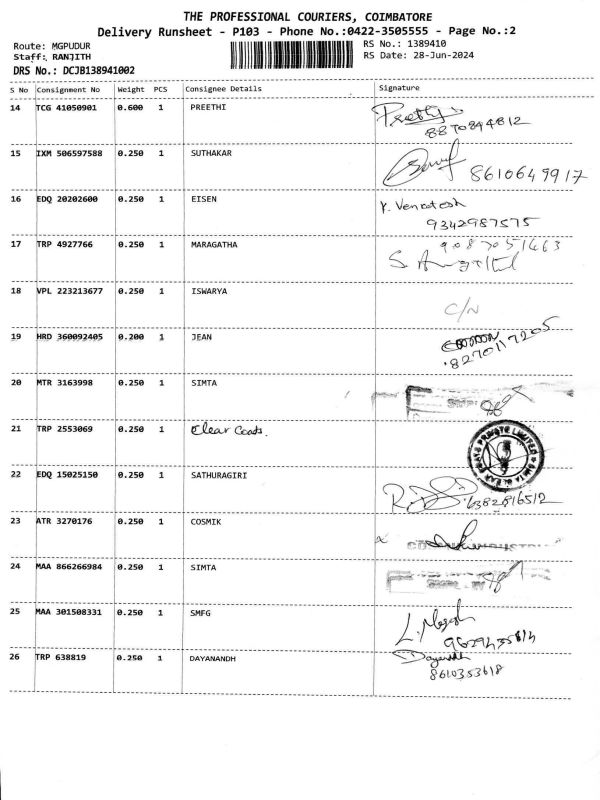 THE PROFESSIONAL COURIERS, COIMBATORE
Delivery Runsheet - P103 - Phone No.:0422-3505555 - Page No.:2
Route: MGPUDUR
RS No.: 1389410
Staff: RANJITH
RS Date: 28-Jun-2024
DRS No.: DCJB138941002
S No Consignment No Weight PCS Consignee Details Signature
14 TCG 41050901 0.600 1 PREETHI Preethy
8870894812
15 IXM 506597588 0.250 1 SUTHAKAR 8610649917
16 EDQ 20202600 0.250 1 EISEN Y. Venkatesh
9342987575
17 TRP 4927766 0.250 1 MARAGATHA 9087051463
18 VPL 223213677 0.250 1 ISWARYA C/N
19 HRD 360092405 0.200 1 JEAN
8270117205
20 MTR 3163998 0.250 1 SIMTA
21 TRP 2553069 0.250 1 Clear Coats. SIMTA CLEAR COATS PRIVATE LIMITED
22 EDQ 15025150 0.250 1 SATHURAGIRI 6382816512
23 ATR 3270176 0.250 1 COSMIK
24 MAA 866266984 0.250 1 SIMTA
25 MAA 301508331 0.250 1 SMFG
26 TRP 638819 0.250 1 DAYANANDH
8610353618